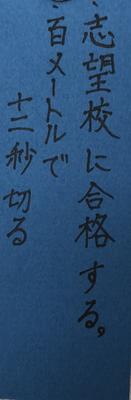 ・志望校に合格する。
・百メートルで
十二秒切る